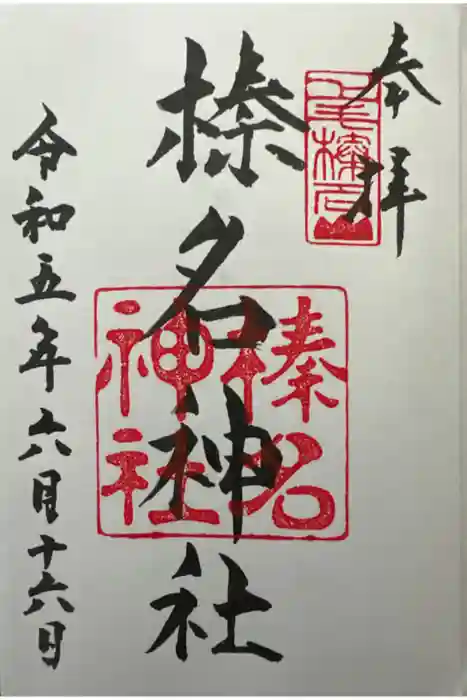 奉拝
榛名神社
榛名
神社
令和五年六月十六日